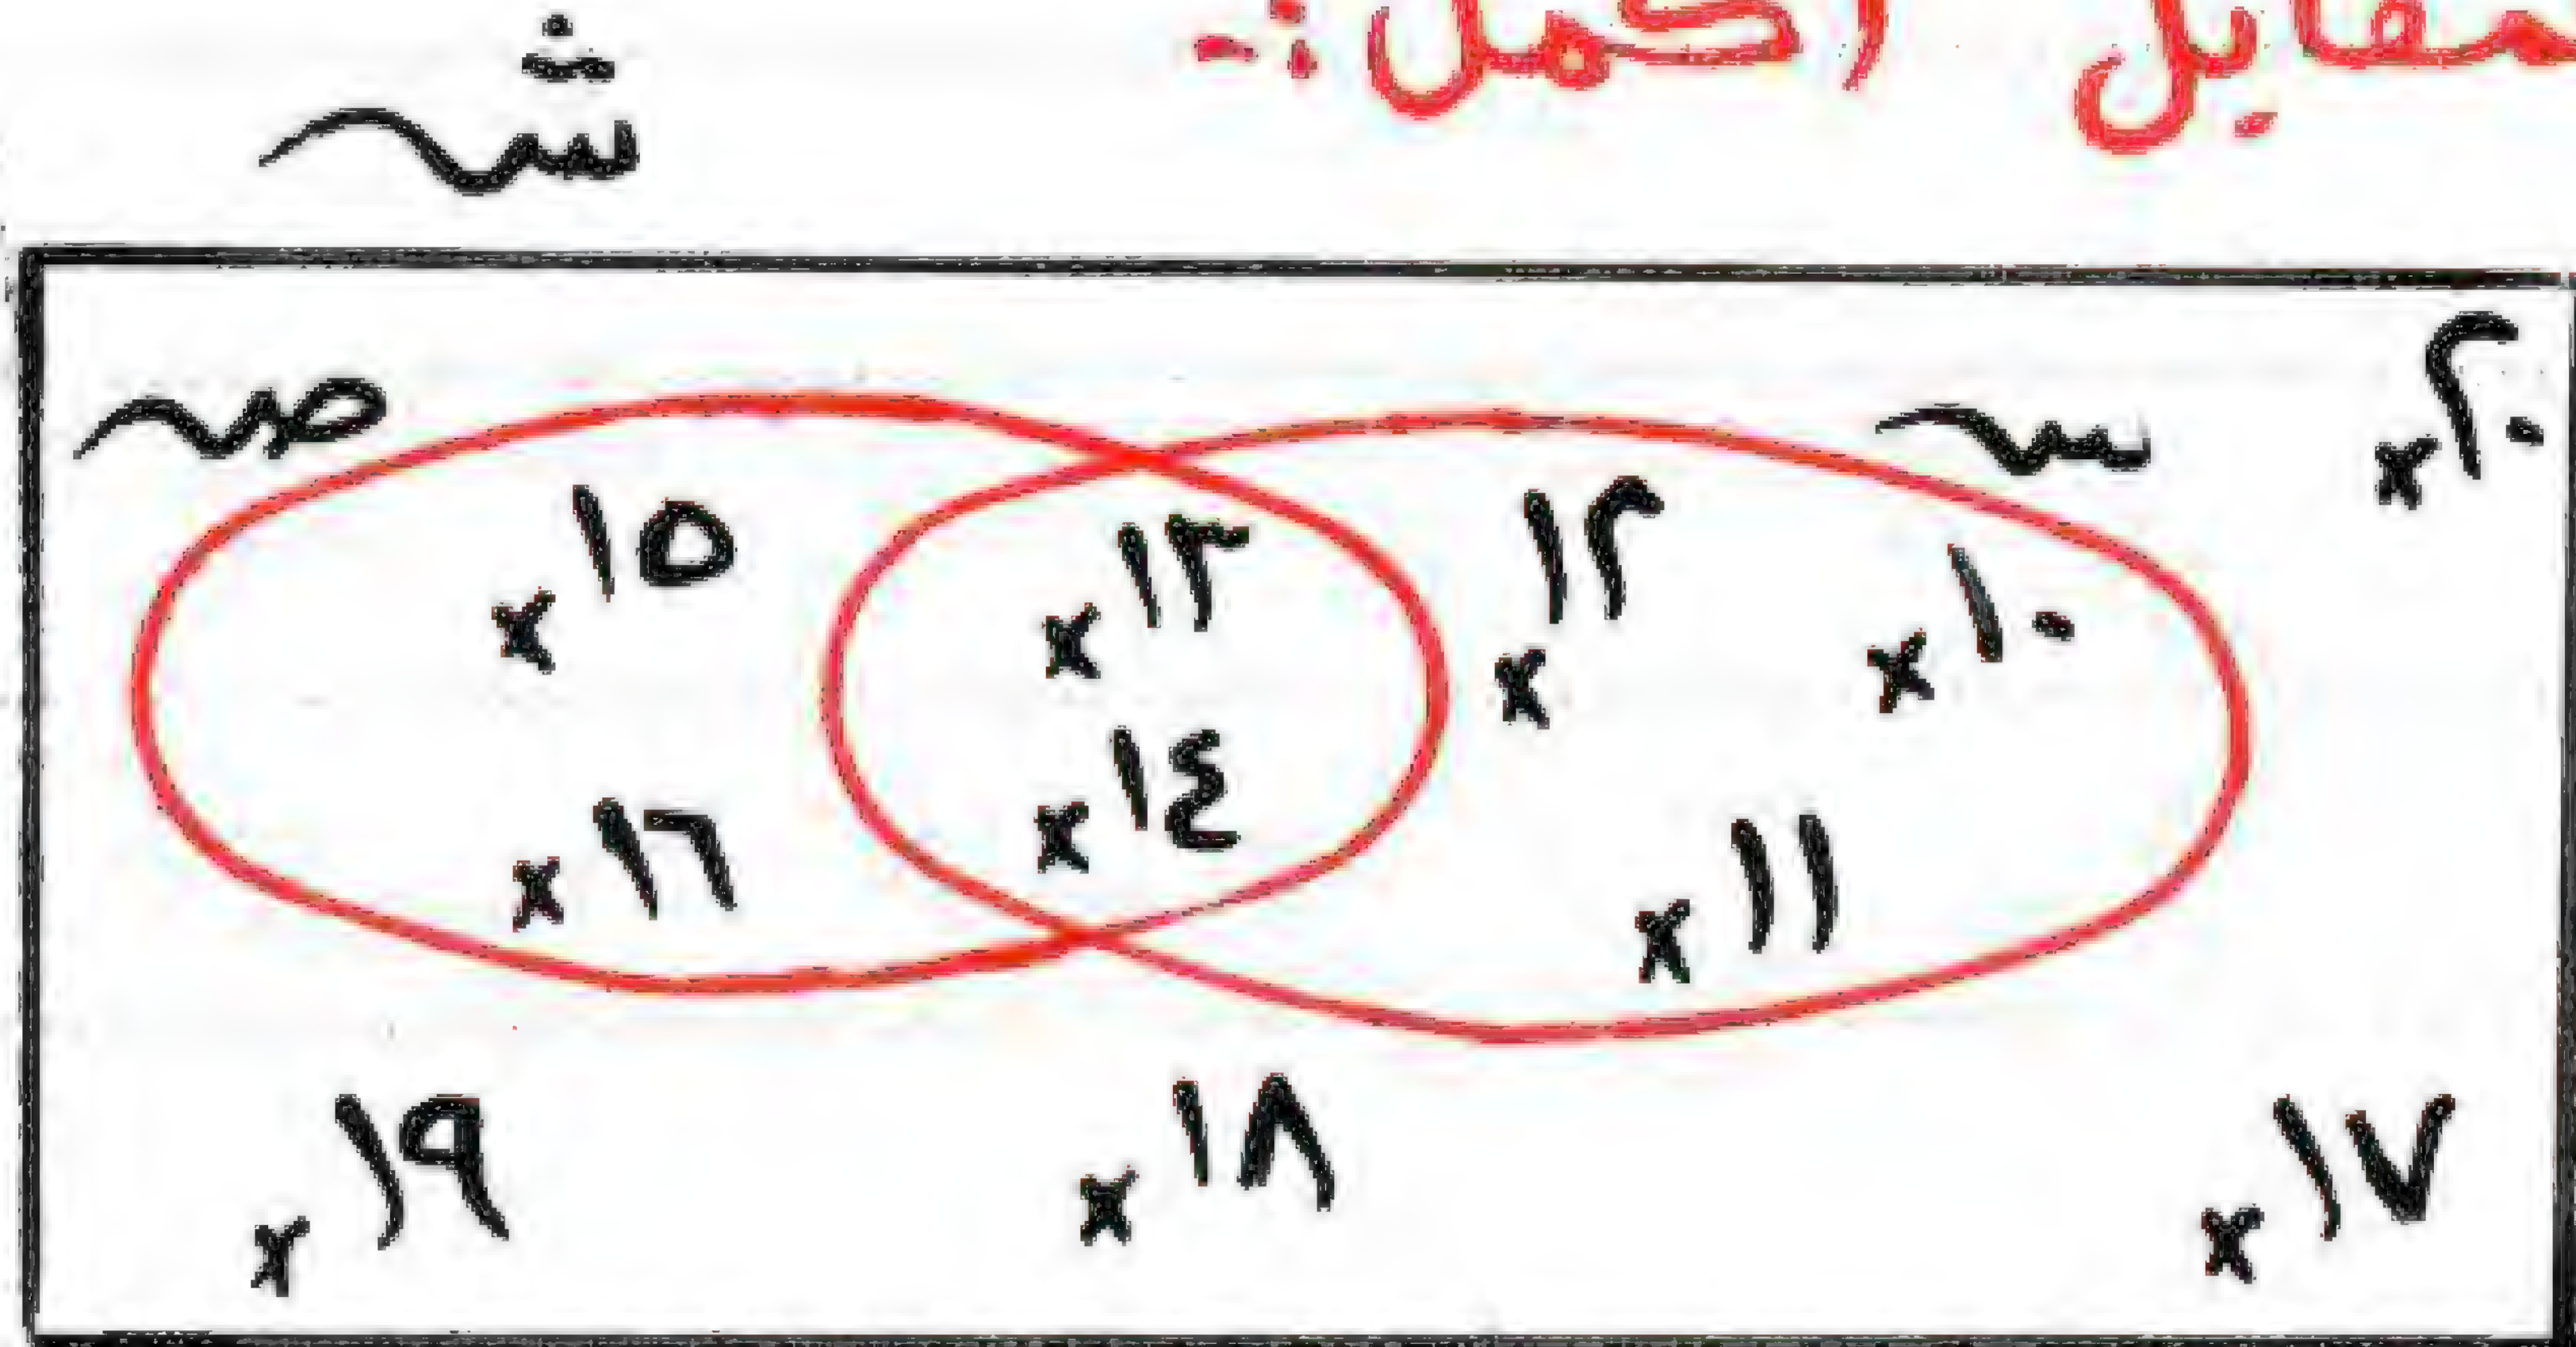 مقابل أكمل :-
ش
س
٢٠
ص
س
١٥
١٣
١٢
١٠
١٤
١٦
١١
١٩
١٨
١٧